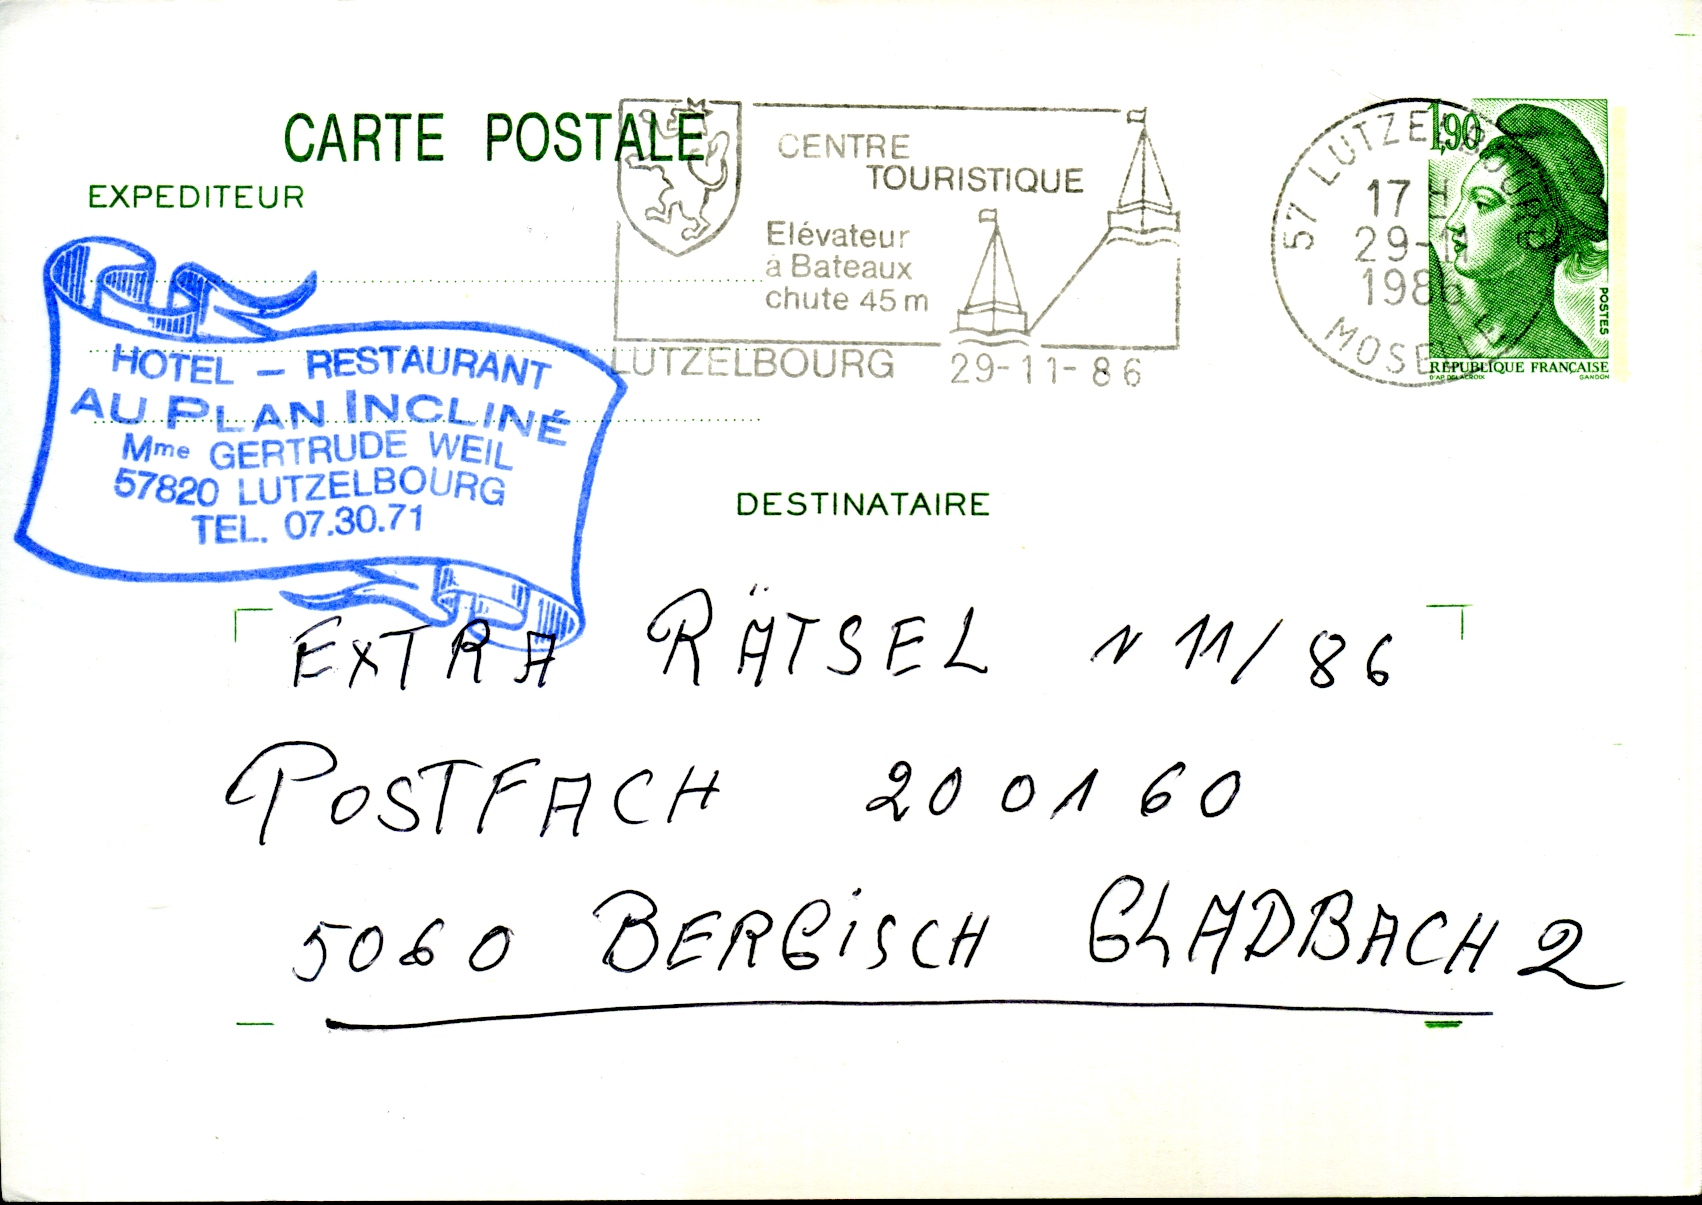 CARTE POSTALE
EXPEDITEUR
CENTRE
TOURISTIQUE
Elévateur
à Bateaux
chute 45 m
LUTZELBOURG 29-11-86
57 LUTZELBOURG
17 H
29-11
1986
MOSELLE
1,90
POSTES
RÉPUBLIQUE FRANÇAISE
D'AP. DELACROIX GANDON
HOTEL – RESTAURANT
AU PLAN INCLINÉ
Mme GERTRUDE WEIL
57820 LUTZELBOURG
TEL. 07.30.71
DESTINATAIRE
EXTRA RÄTSEL N 11/86
POSTFACH 20 01 60
5060 BERGISCH GLADBACH 2